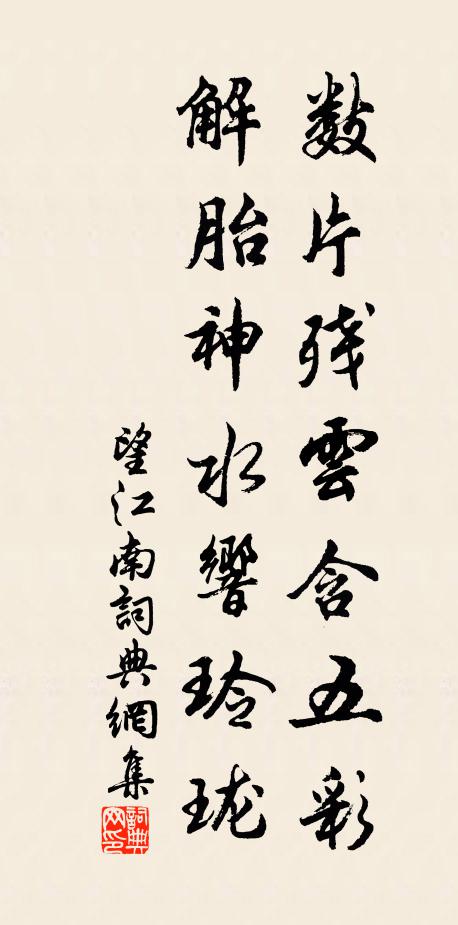 數片殘雲含五彩
解胎神水響玲瓏
望江南詞典網集
詞典網印